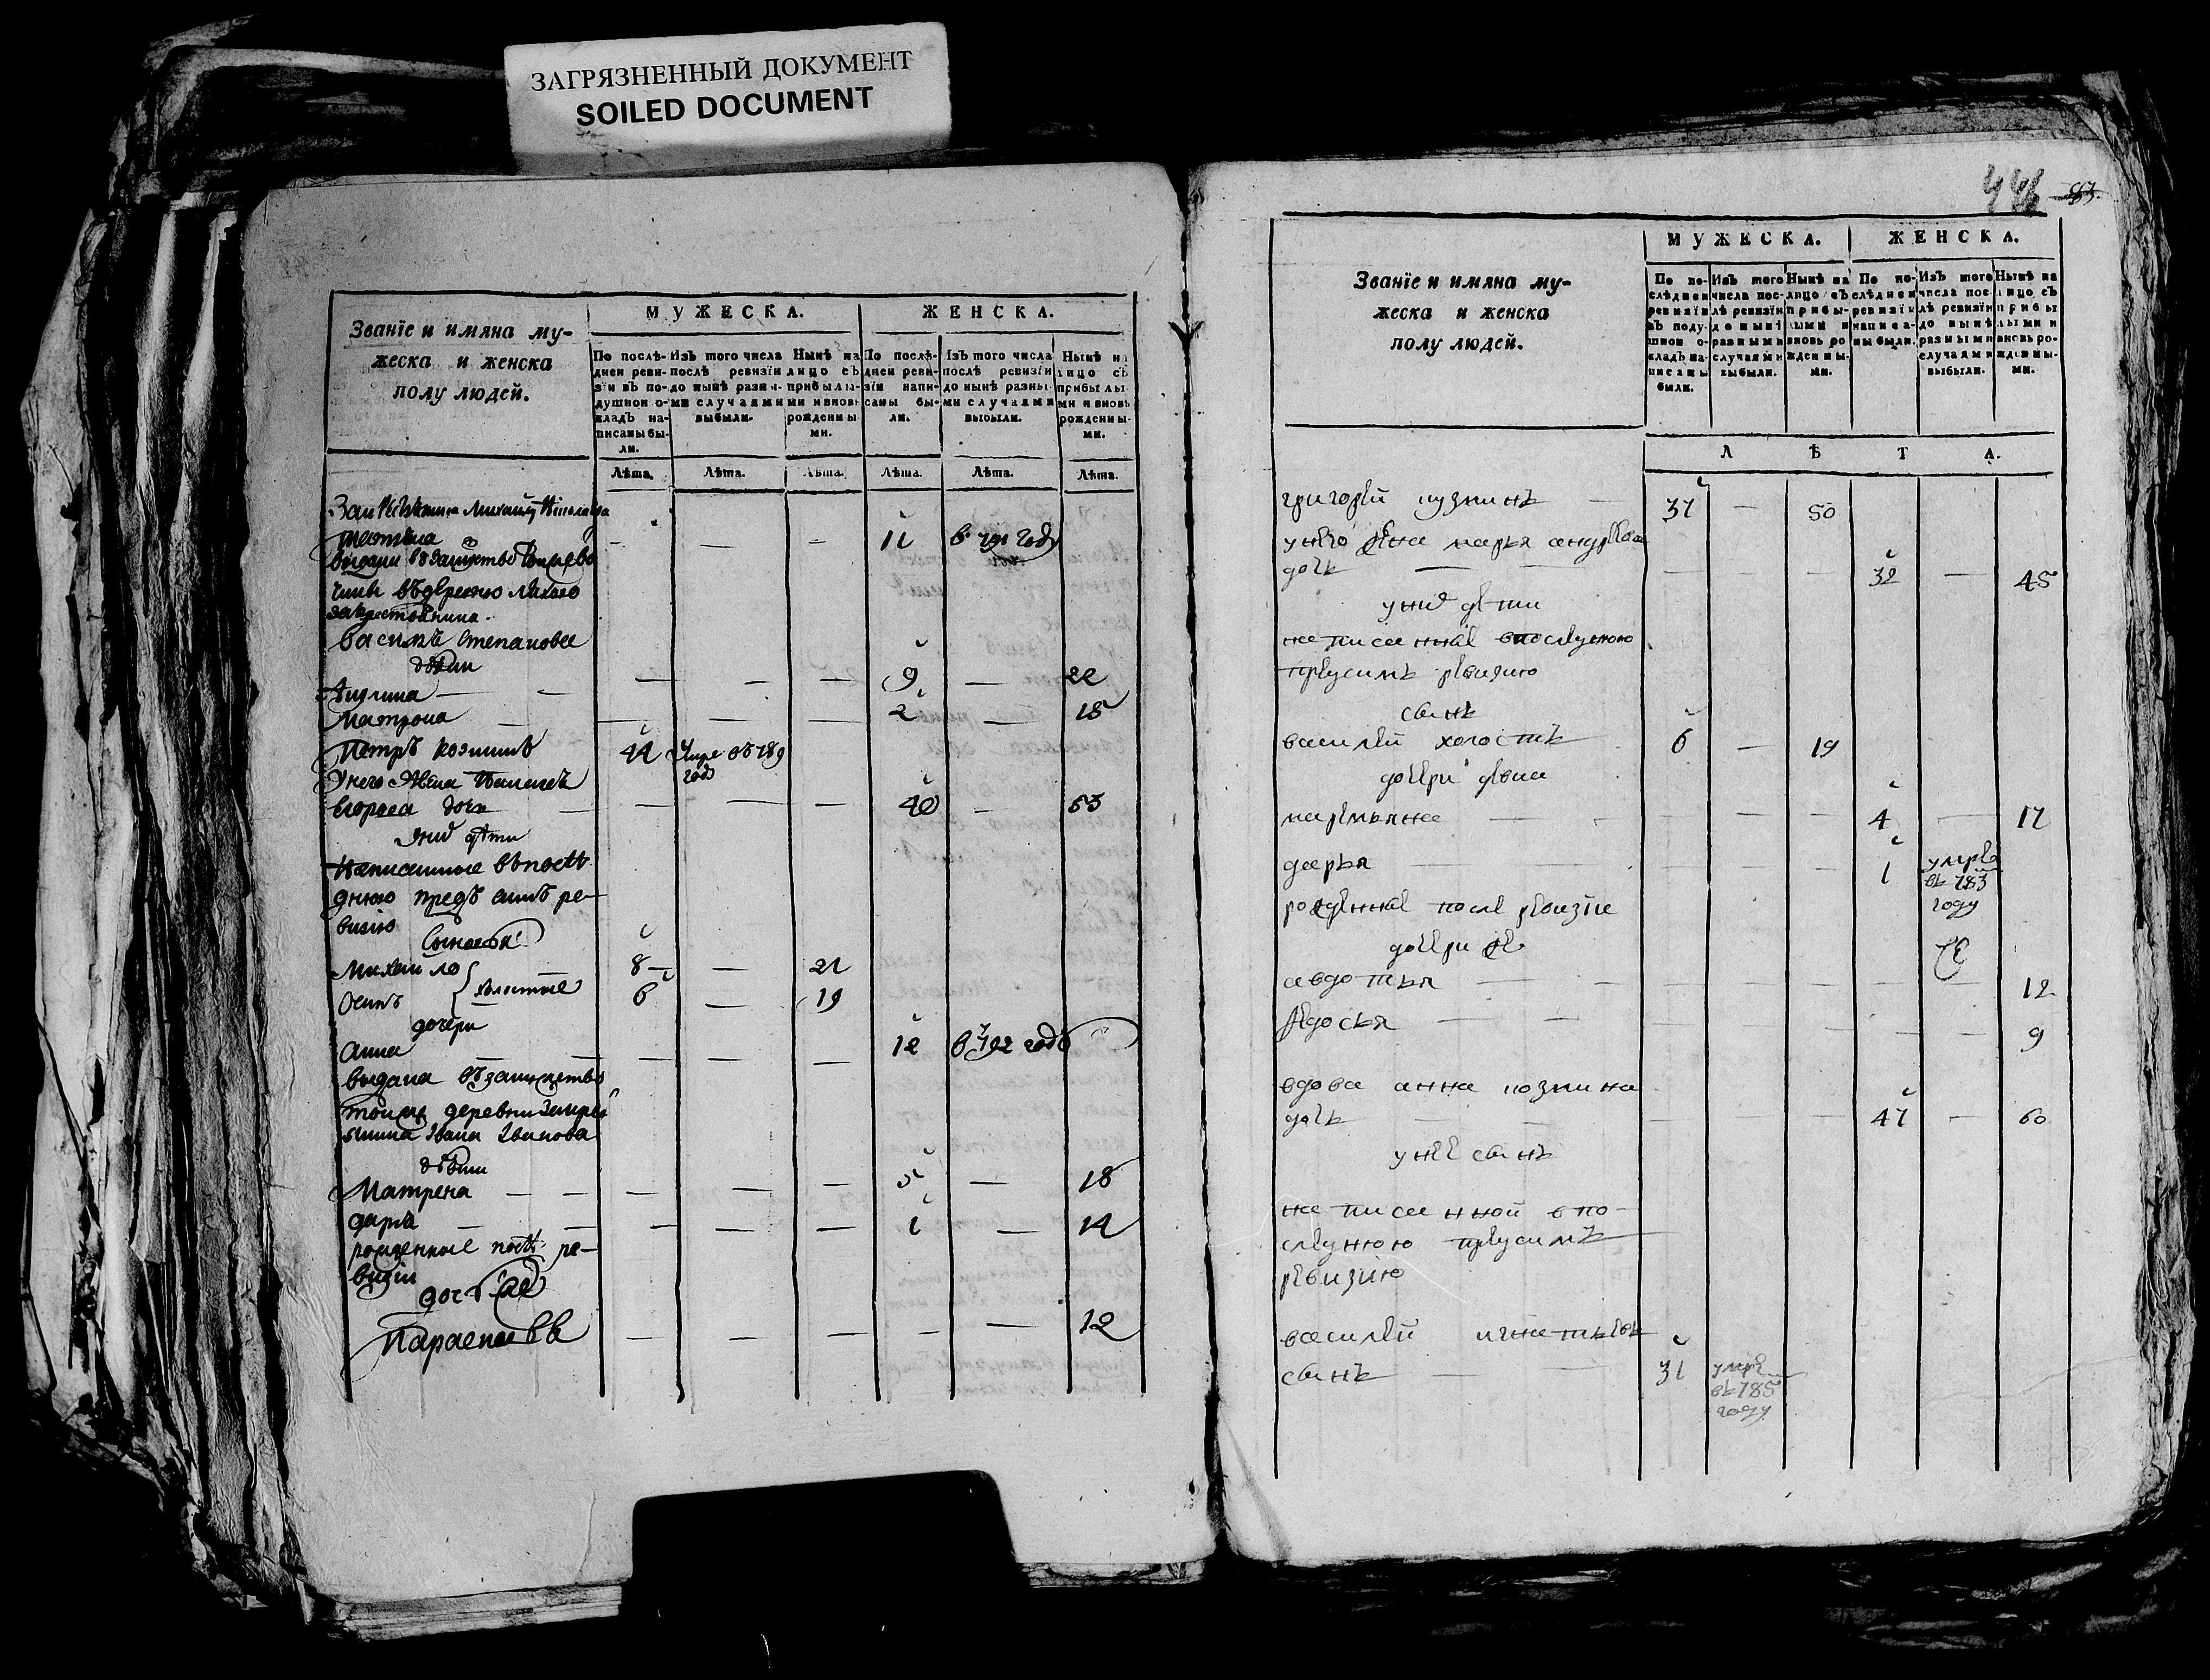 ЗАГРЯЗНЕННЫЙ ДОКУМЕНТ
SOILED DOCUMENT
Званїе и имяна му-
жеска и женска
полу людей.
МУЖЕСКА.
ЖЕНСКА.
По послѣ-
дней реви-
зїи въ по-
душной о-
кладъ на-
писаны бы-
ли.
Изъ того числа
послѣ ревизїи
до нынѣ разны-
ми случаями
выбыли.
Нынѣ на
лицо съ
прибылы-
ми и вновь
рожденны-
ми.
По послѣ-
дней реви-
зїи напи-
саны бы-
ли.
Изъ того числа
послѣ ревизїи
до нынѣ разны-
ми случаями
выбыли.
Нынѣ на
лицо съ
прибылы-
ми и вновь
рожденны-
ми.
Лѣта. Лѣта. Лѣта. Лѣта. Лѣта. Лѣта.
11 в 791 году
выдана в замужство
въ деревню
василья степанова
дѣти
Акулина 9 22
Матрона 2 15
Петръ козминъ 44 умре въ 789
годѣ
У него жена
егорова дочь 40 53
У них дѣти
Написанные въ послѣ-
днюю предъ симъ ре-
визию
Сыновья
Михайло 8 21
Осипъ холостые 6 19
дочери
Анна 12 в 792 годѣ
выдана въ замужство
тоиже деревни
Ивана Иванова
дѣти
Матрена 5 18
дарья 1 14
рожденные послѣ ре-
визїи
дочь
Парасковья 12
446 83.
Званїе и имяна му-
жеска и женска
полу людей.
МУЖЕСКА.
ЖЕНСКА.
По по-
слѣдней
ревизїи
въ поду-
шной о-
кладъ на-
писаны
были.
Изъ того
числа пос-
лѣ ревизїи
до нынѣ
разными
случаями
выбыли.
Нынѣ на
лицо съ
прибы-
лыми и
вновь ро-
жденны-
ми.
По по-
слѣдней
ревизїи
написа-
ны были.
Изъ того
числа пос-
лѣ ревизїи
до нынѣ
разными
случаями
выбыли.
Нынѣ на
лицо съ
прибы-
лыми и
вновь ро-
жденны-
ми.
ЛѢТА.
григорей кузминъ 37 50
у него жена марья андреева
дочь 32 45
у них дети
написанные в последнюю
предсимъ ревизию
сынъ
василей холостъ 6 19
дочери девки
маремьяна 4 17
дарья 1 умре
въ 783
году
рожденные после ревизїи
дочери
авдотья 12
федосья 9
вдова анна козмина
дочь 47 60
у неё сынъ
написанной в по-
следнюю предсимъ
ревизию
василей игнатьевъ
сынъ 31 умре
въ 785
году